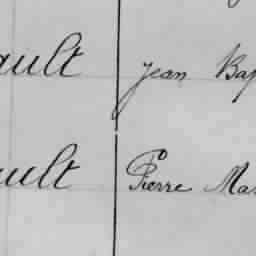 ault Jean Bap
ault Pierre Mar